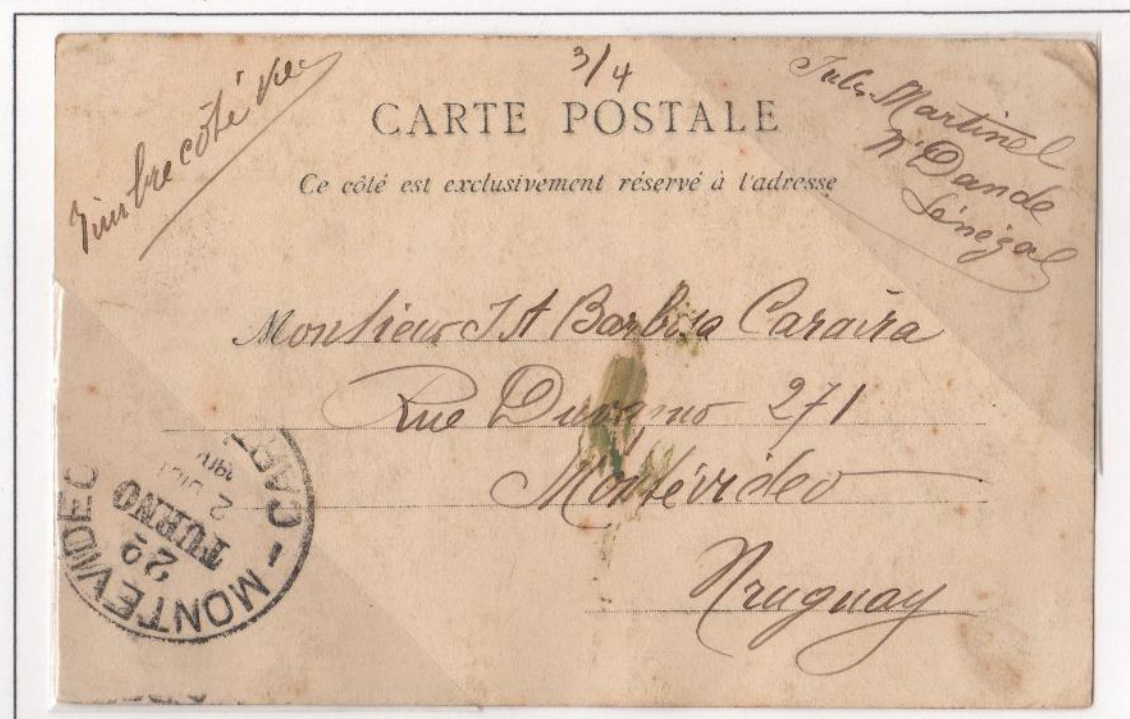 Timbre côté vue
3/4
Jules Martinel
N'Dande
Sénégal
CARTE POSTALE
Ce côté est exclusivement réservé à l'adresse
Monsieur J A Barbosa Caravia
Rue Durazno 271
Montévideo
Uruguay
MONTEVIDEO - CART
2º
TURNO
2